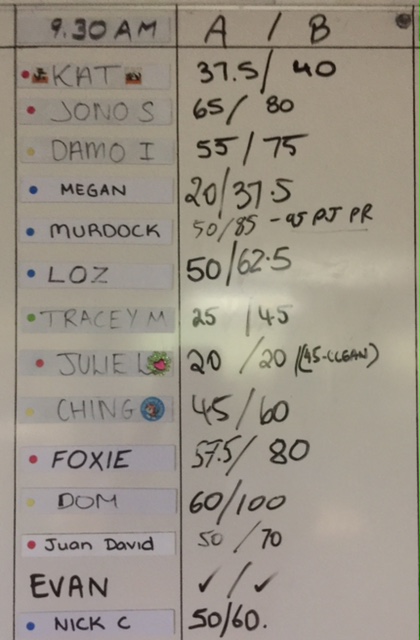 9.30 AM A / B
KAT 37.5/ 40
JONO S 65/ 80
DAMO I 55/ 75
MEGAN 20/37.5
MURDOCK 50/85 - 95 PJ PR
LOZ 50/62.5
TRACEY M 25 /45
JULIE L 20 /20 (45-CLEAN)
CHING 45/60
FOXIE 57.5/ 80
DOM 60/100
Juan David 50 /70
EVAN ✓/✓
NICK C 50/60.